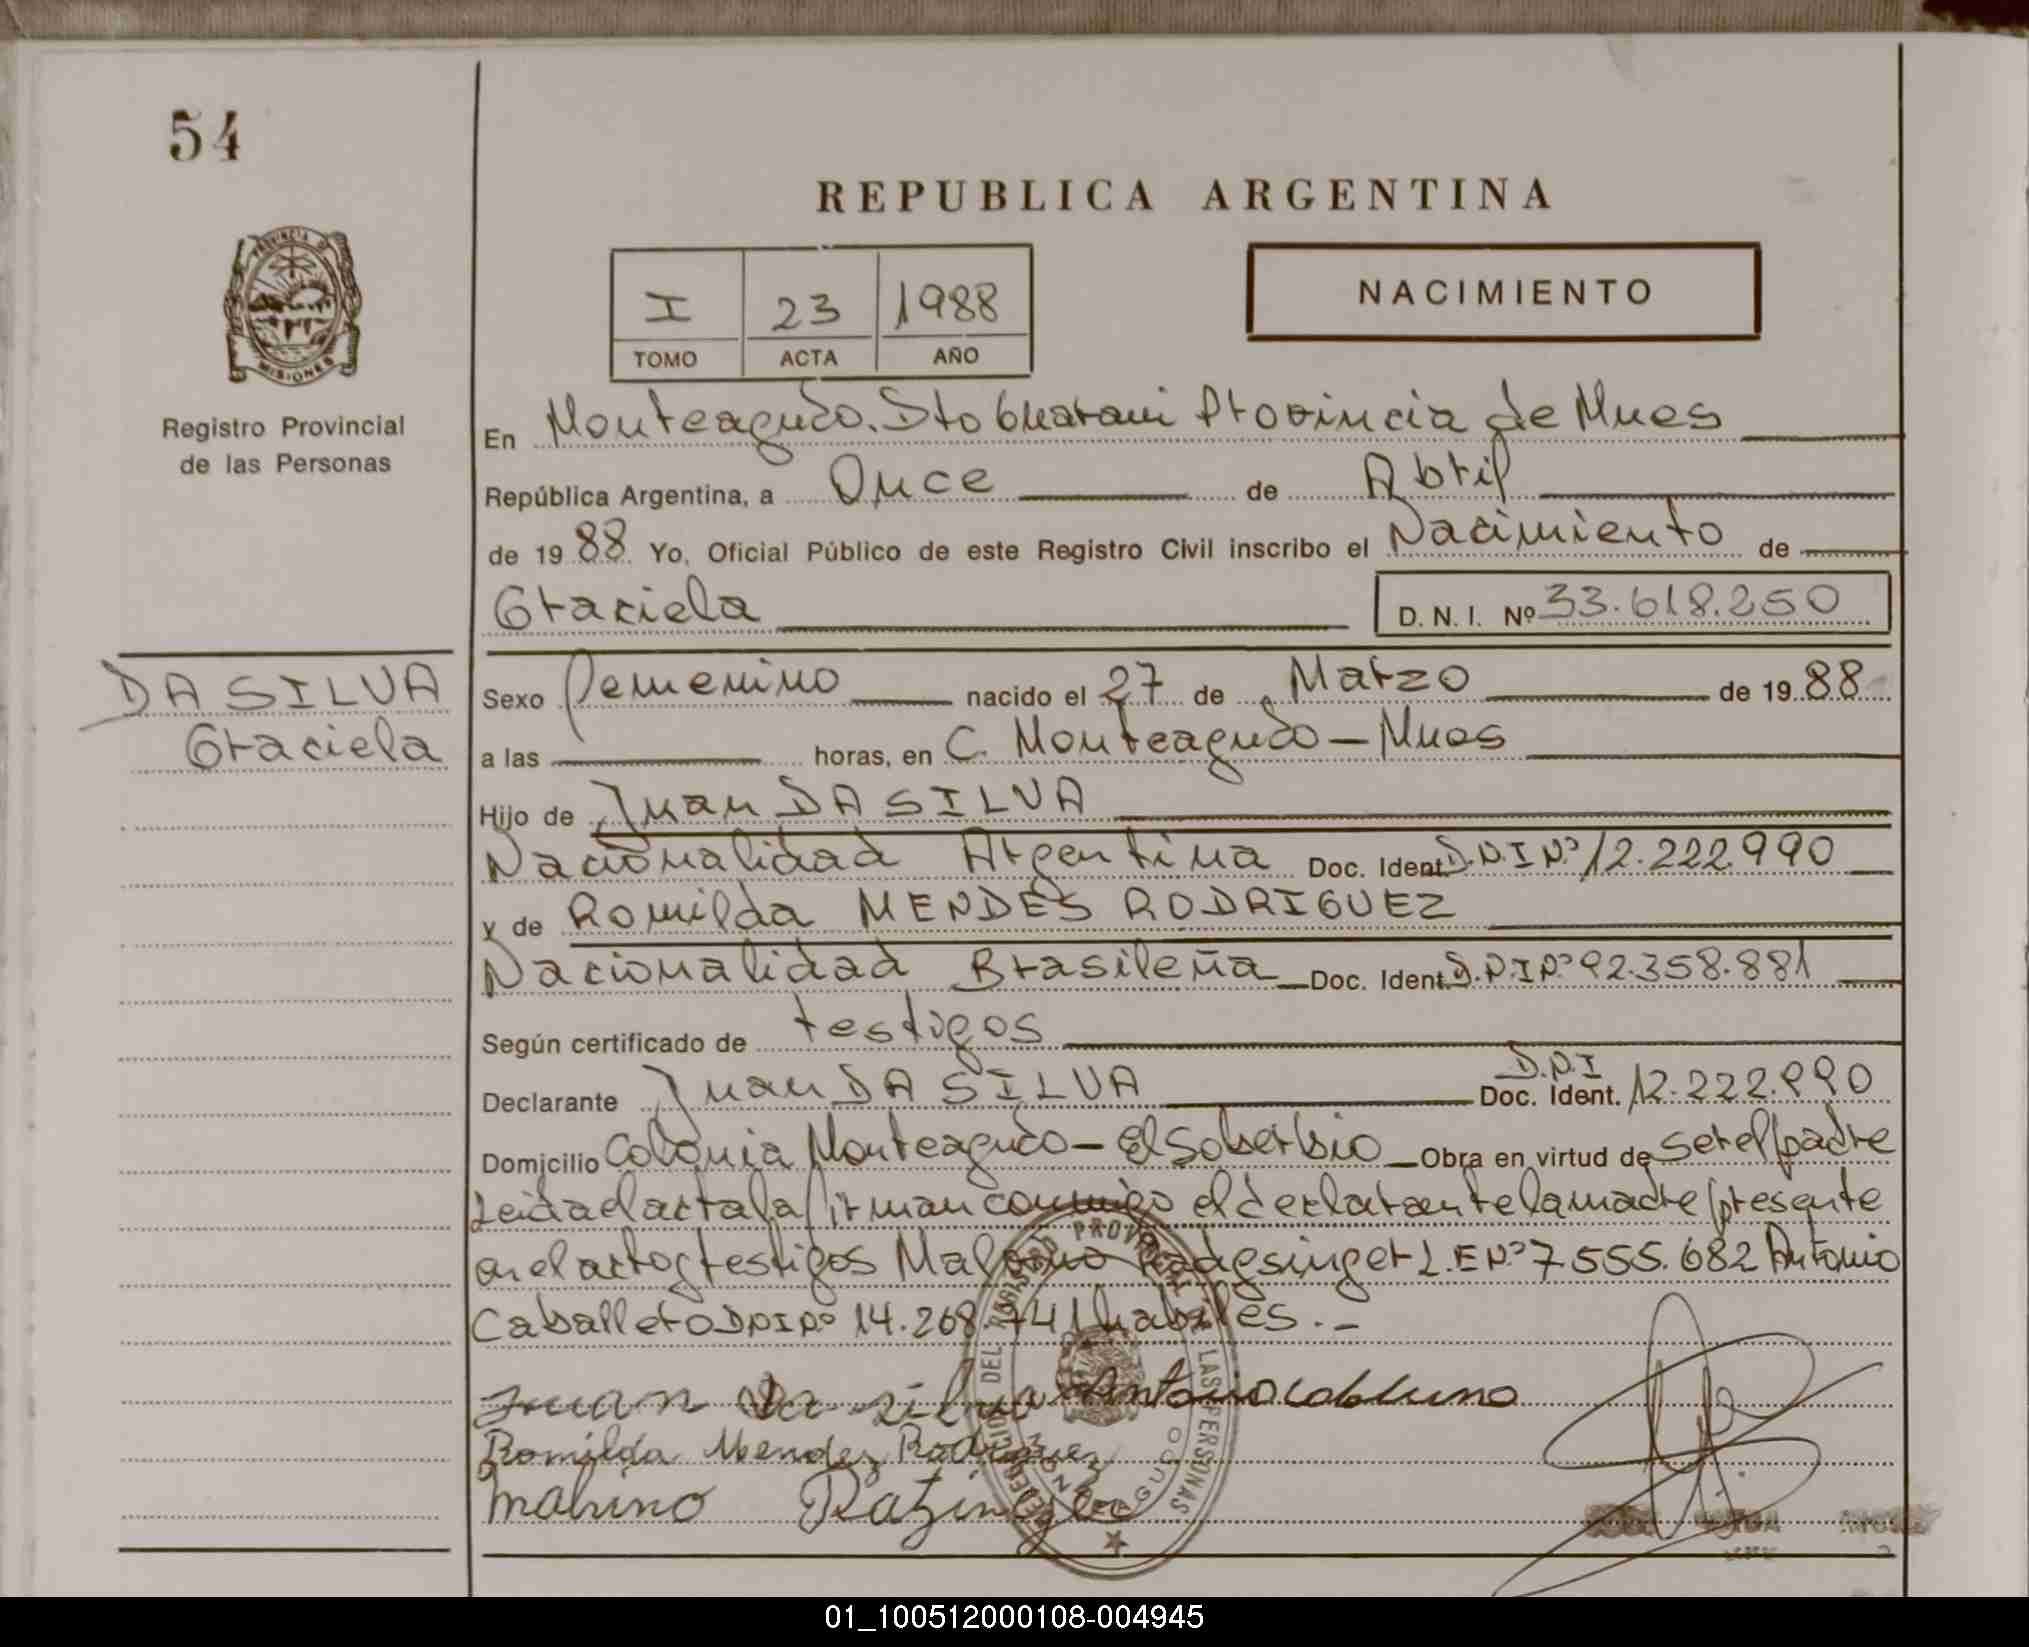 54
REPUBLICA ARGENTINA
PROVINCIA D
MISIONES
Registro Provincial
de las Personas
I 23 1988
TOMO ACTA AÑO
NACIMIENTO
En Monteagudo. Dto Guarani Provincia de Mnes
República Argentina, a Once de Abril
de 1988 Yo, Oficial Público de este Registro Civil inscribo el Nacimiento de
Graciela D. N. I. Nº 33.618.250
DA SILVA
Graciela
Sexo femenino nacido el 27 de Marzo de 1988
a las horas, en C. Monteagudo - Mnes
Hijo de Juan DA SILVA
Nacionalidad Argentina Doc. Ident. D.N.I Nº 12.222.990
y de Romilda MENDES RODRIGUEZ
Nacionalidad Brasileña Doc. Ident. D.N.I Nº 92.358.881
Según certificado de testigos
Declarante Juan DA SILVA Doc. Ident. D.N.I 12.222.990
Domicilio Colonia Monteagudo - El Soberbio Obra en virtud de ser el padre
Leida el acta la firman conmigo el declarante la madre presente
en el acto y testigos L.E Nº 7.555.682 Antonio
Caballero DNI Nº 14.268.741 habiles. -
Juan Da silva Antonio
Romilda Mendez Rodriguez
DEL REGISTRO PROVINCIAL DE LAS PERSONAS
MONTEAGUDO
01_100512000108-004945